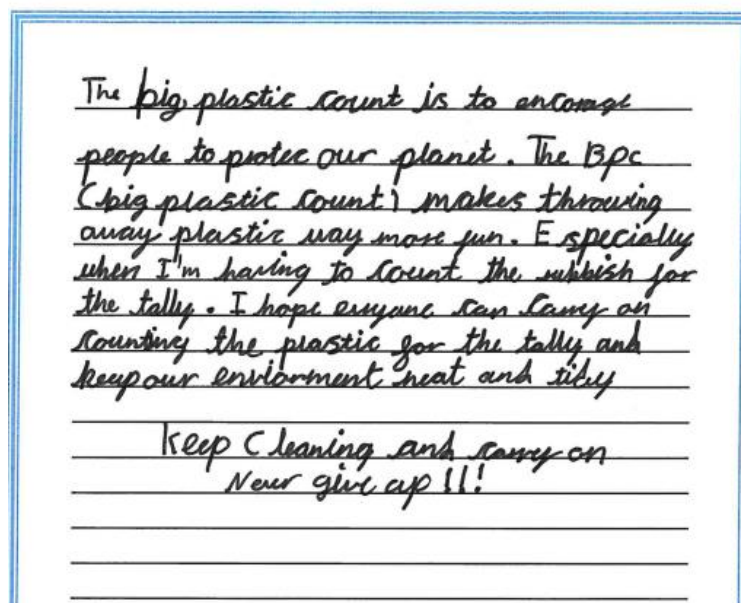 The big plastic count is to encorage
people to protec our planet. The BPC
(big plastic count) makes throwing
away plastic way more fun. Especially
when I'm having to count the rubbish for
the tally. I hope everyone can carry on
counting the plastic for the tally and
keep our enviorment neat and tidy
keep Cleaning and carry on
Never give up !!!